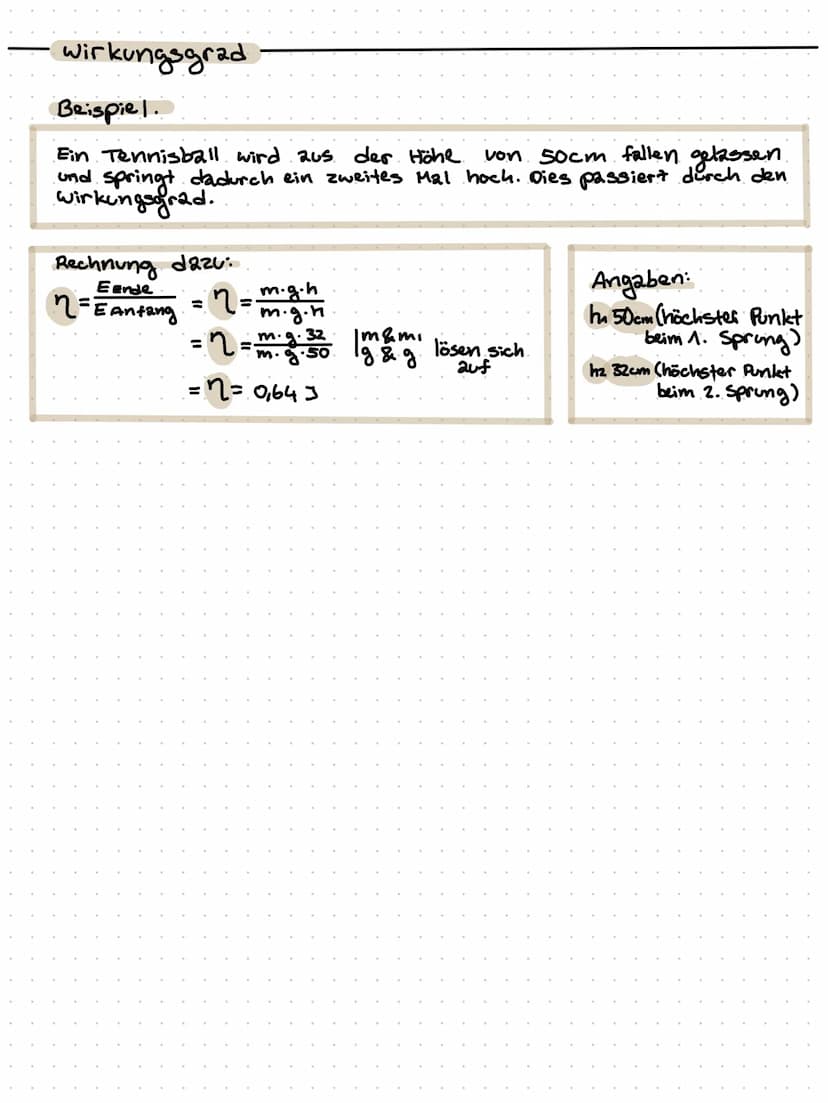 Wirkungsgrad
Beispiel.
Ein Tennisball wird aus der Höhe von 50cm fallen gelassen
und springt dadurch ein zweites Mal hoch. Dies passiert durch den
Wirkungsgrad.
Rechnung dazu:
η = E Ende / E Anfang = η = m·g·h / m·g·h
= η = m·g·32 / m·g·50 | m & m, g & g lösen sich auf
= η = 0,64 J
Angaben:
h1 50cm (höchster Punkt
beim 1. Sprung)
h2 32cm (höchster Punkt
beim 2. Sprung)